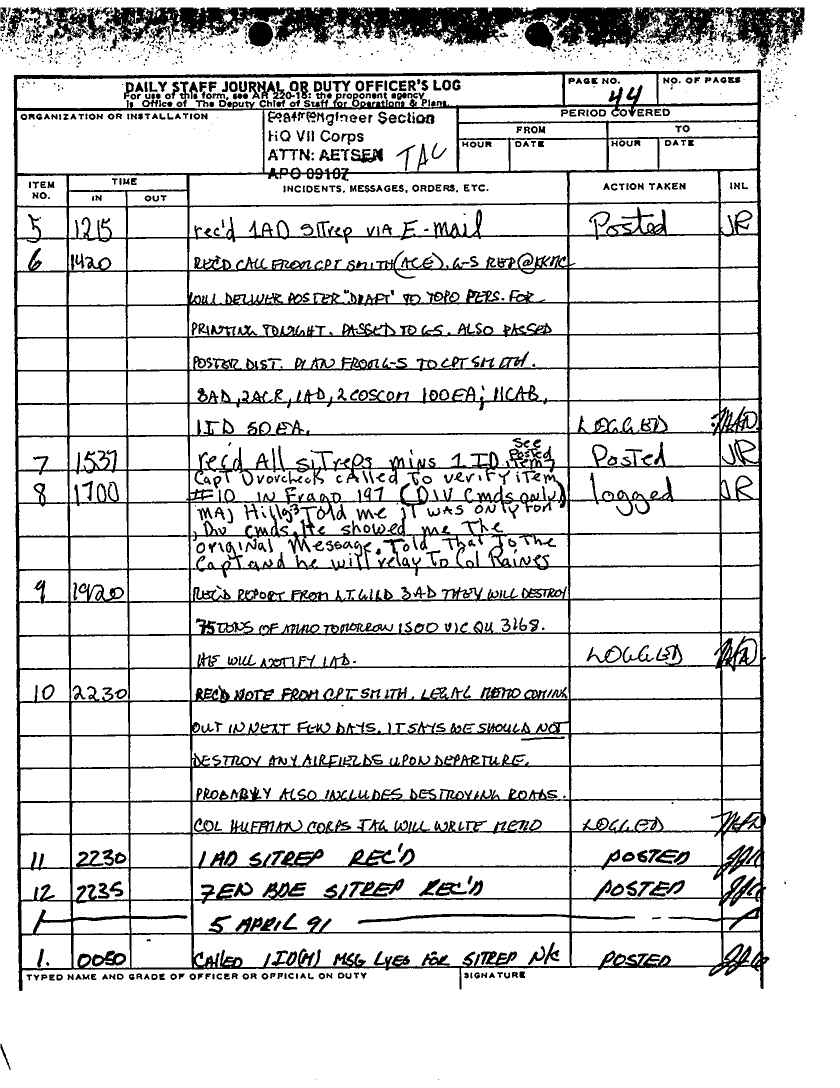 DAILY STAFF JOURNAL OR DUTY OFFICER'S LOG
For use of this form, see AR 220-15; the proponent agency
is Office of The Deputy Chief of Staff for Operations & Plans.
PAGE NO. 44
NO. OF PAGES
ORGANIZATION OR INSTALLATION
Engineer Section
HQ VII Corps
ATTN: AETSEN TAC
APO 09107
PERIOD COVERED
FROM TO
HOUR DATE HOUR DATE
ITEM NO. TIME IN OUT INCIDENTS, MESSAGES, ORDERS, ETC. ACTION TAKEN INL
5 1215 rec'd 1AD SITrep VIA E-mail Posted JR
6 1420 REC'D CALL FROM CPT SMITH (ACE). G-5 REP @ KKMC
WILL DELIVER POSTER "DRAFT" TO TOPO PERS. FOR
PRINTING TONIGHT. PASSED TO G5. ALSO PASSED
POSTER DIST. PLAN FROM G-5 TO CPT SMITH.
3AD, 2ACR, 1AD, 2COSCOM 100 EA; 11CAB,
1ID 50 EA. LOGGED
7 1537 rec'd All siTreps mins 1 ID See Posted item 7 Posted JR
8 1700 Capt Dvorcheck cAlled To verify iTem
#10 in Frago 197 (DIV Cmds only) logged JR
MAJ Hill G3 Told me iT was only for
Div cmds. He showed me The
original Message. Told That To the
Capt and he will relay To Col Raines
9 1920 REC'D REPORT FROM LT. WILD 3AD THEY WILL DESTROY
75 TONS OF AMMO TOMORROW 1500 VIC QU 3168.
HE WILL NOTIFY 1AD. LOGGED
10 2230 REC'D NOTE FROM CPT. SMITH. LEGAL MEMO COMING
OUT IN NEXT FEW DAYS. IT SAYS WE SHOULD NOT
DESTROY ANY AIRFIELDS UPON DEPARTURE.
PROBABLY ALSO INCLUDES DESTROYING ROADS.
COL HUFFMAN CORPS JAG WILL WRITE MEMO LOGGED
11 2230 1AD SITREP REC'D POSTED
12 2235 7EN BDE SITREP REC'D POSTED
5 APRIL 91
1. 0050 CALLED 1ID(M) MSG LVES FOR SITREP N/C POSTED
TYPED NAME AND GRADE OF OFFICER OR OFFICIAL ON DUTY SIGNATURE